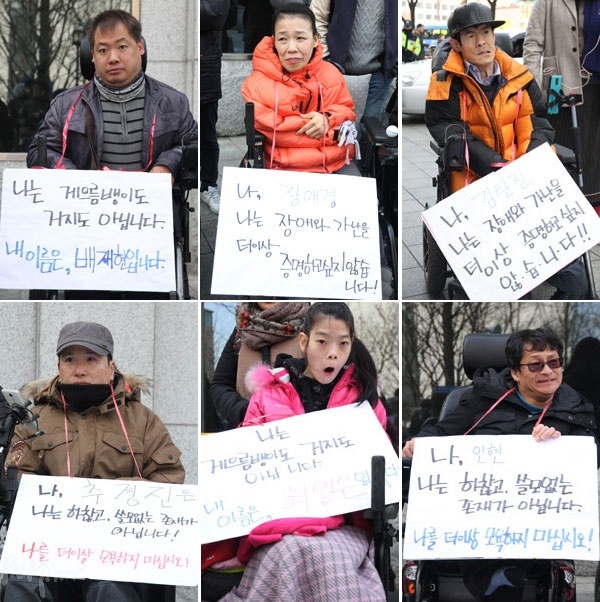 나는 게으름뱅이도
거지도 아닙니다.
내 이름은, 배재현입니다.
나, 장애경
나는 장애와 가난을
더이상
증명하고싶지않습
니다!
나, 김탈진
나는 장애와 가난을
더이상 증명하고싶지
않습니다!!
나, 추경진은
나는 하찮고, 쓸모없는
존재가
아닙니다!
나를 더이상 모욕하지 마십시오!
나는
게으름뱅이도 거지도
아닙니다.
내
이름은, 최영은입니다
나, 인현
나는 하찮고, 쓸모없는
존재가 아닙니다.
나를 더이상 모욕하지 마십시오!